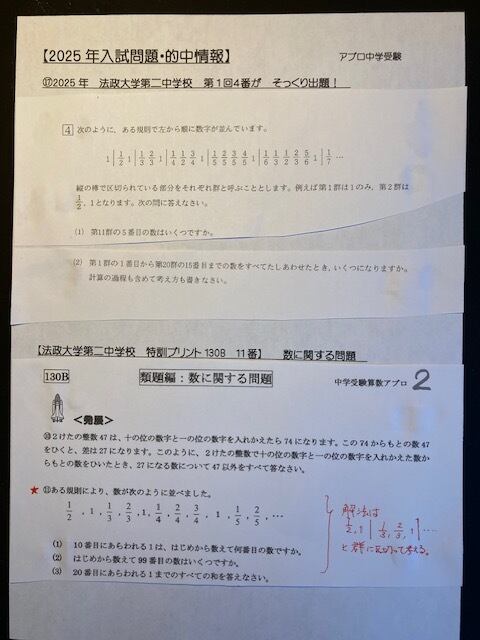 【2025年入試問題・的中情報】
アプロ中学受験
⑰2025年 法政大学第二中学校 第1回4番が そっくり出題！
4 次のように、ある規則で左から順に数字が並んでいます。
1 | 1/2 1 | 1/3 2/3 1 | 1/4 1/2 3/4 1 | 1/5 2/5 3/5 4/5 1 | 1/6 1/3 1/2 2/3 5/6 1 | 1/7 …
縦の棒で区切られている部分をそれぞれ群と呼ぶこととします。例えば第1群は1のみ、第2群は
1/2, 1となります。次の問に答えなさい。
(1) 第11群の5番目の数はいくつですか。
(2) 第1群の1番目から第20群の15番目までの数をすべてたしあわせたとき、いくつになりますか。
計算の過程も含めて考え方も書きなさい。
【法政大学第二中学校 特訓プリント130B 11番】 数に関する問題
130B 類題編：数に関する問題 中学受験算数アプロ 2
＜発展＞
⑩2けたの整数47は、十の位の数字と一の位の数字を入れかえたら74になります。この74からもとの数47
をひくと、差は27になります。このように、2けたの整数で十の位の数字と一の位の数字を入れかえた数か
らもとの数をひいたとき、27になる数について47以外をすべて答なさい。
★ ⑪ある規則により、数が次のように並べました。
1/2, 1, 1/3, 2/3, 1, 1/4, 2/4, 3/4, 1, 1/5, 2/5, …
(1) 10番目にあらわれる1は、はじめから数えて何番目の数ですか。
(2) はじめから数えて99番目の数はいくつですか。
(3) 20番目にあらわれる1までのすべての和を答えなさい。
解法は
1/2, 1 | 1/3, 2/3, 1 | …
と群に区切って考える。